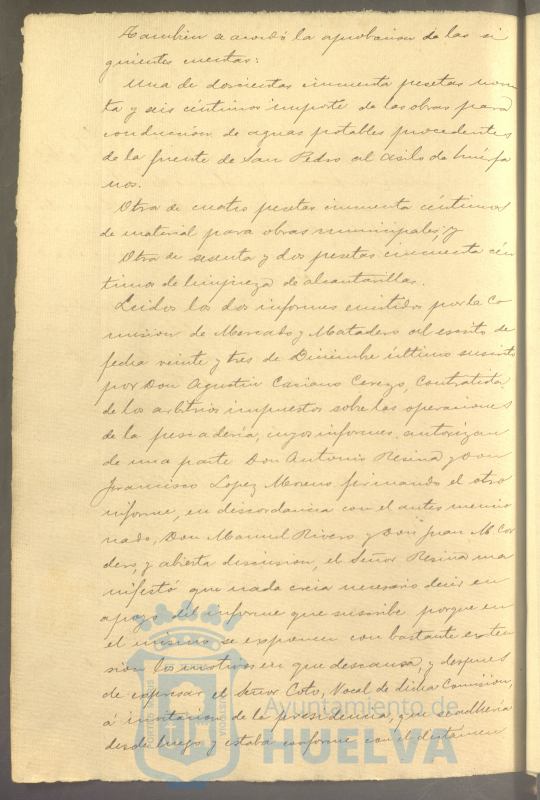 Tambien se acordó la aprobacion de las si
guientes cuentas:
Una de doscientas cincuenta pesetas noven
ta y seis céntimos importe de las obras para
conduccion de aguas potables procedentes
de la fuente de San Pedro al Asilo de huérfa
nos.
Otra de cuatro pesetas cincuenta céntimos
de material para obras municipales; y
Otra de sesenta y dos pesetas cincuenta cén
timos de limpieza de alcantarillas.
Leidos los dos informes emitidos por la Co
mision de Mercado y Matadero al escrito de
fecha veinte y tres de Diciembre último suscrito
por Don Agustin Cerezo, Contratista
de los arbitrios impuestos sobre las operaciones
de la pescadería, cuyos informes autorizan
de una parte Don Antonio Resina y Don
Francisco Lopez Moreno firmando el otro
informe, en discordancia con el antes mencio
nado, Don Manuel Rivero y Don Juan M. Cor
dero, y abierta discusion, el Señor Resina ma
nifestó que nada creia necesario decir en
apoyo del informe que suscribe porque en
el mismo se exponen con bastante exten
sion los motivos en que descansa, y despues
de expresar el Señor Coto, Vocal de dicha Comision,
á invitacion de la presidencia, que se adheria
desde luego y estaba conforme con el dictamen
Ayuntamiento de
HUELVA